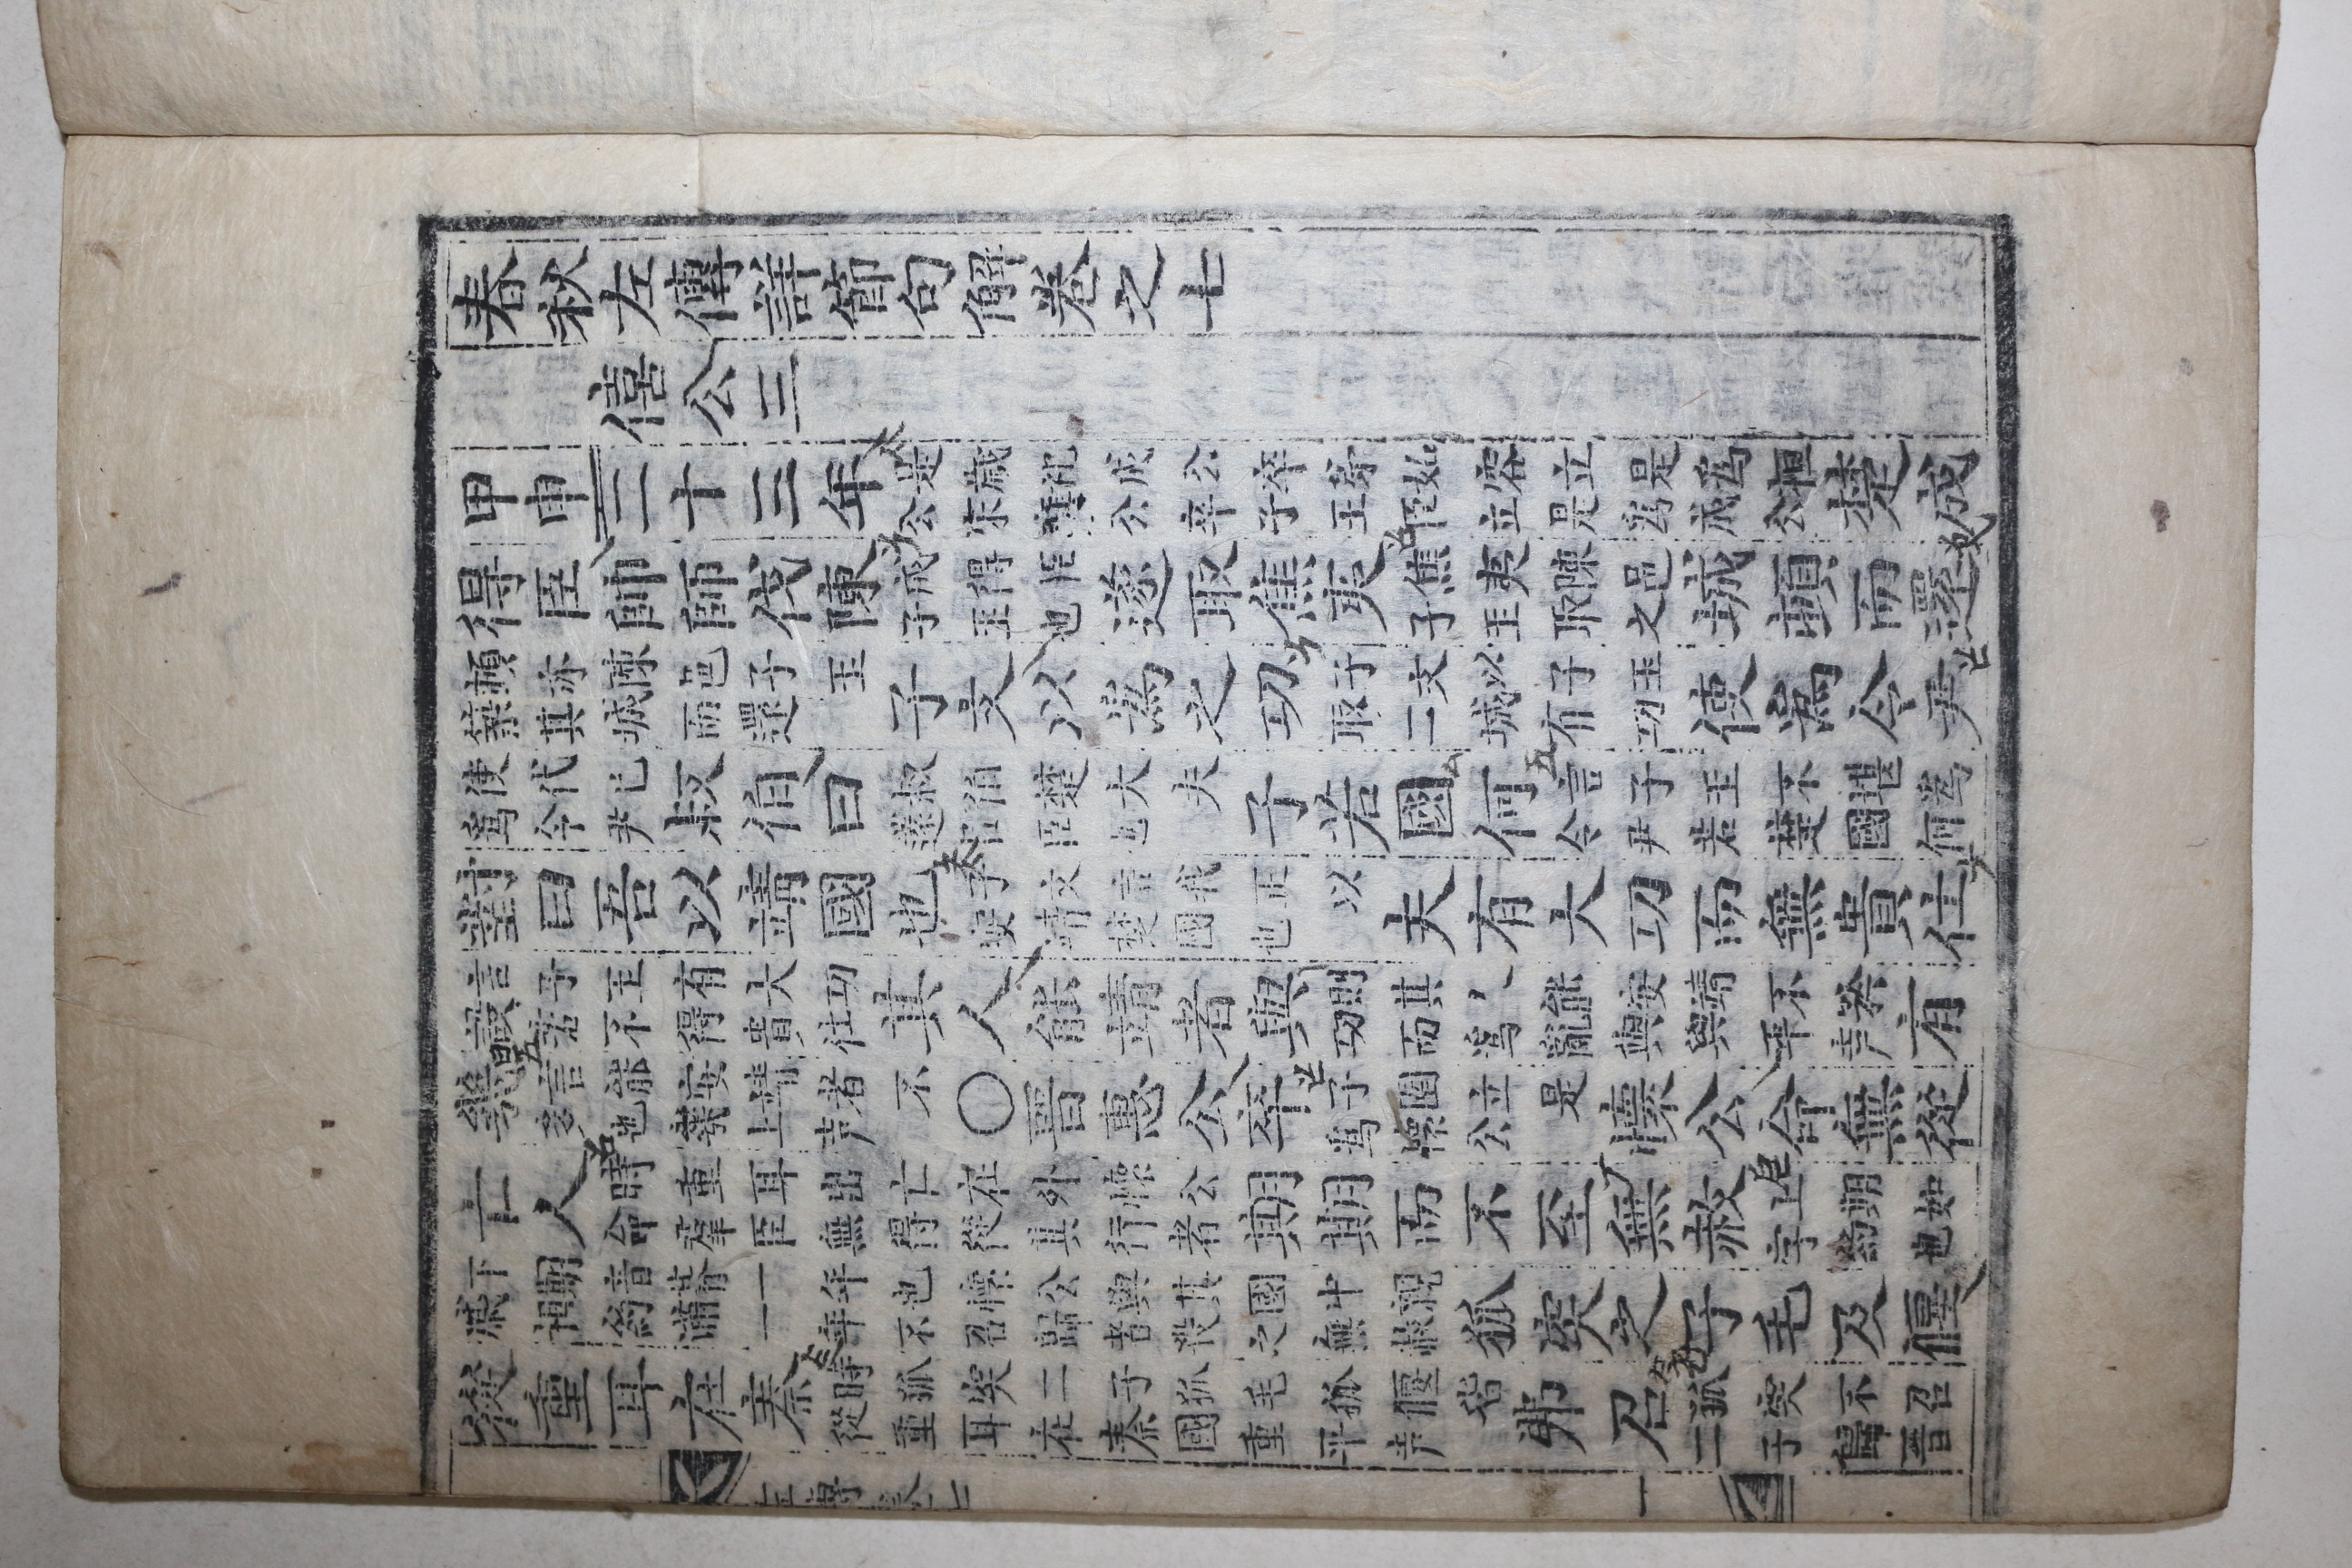 春秋左傳詳節句解卷之七
僖公三
甲申二十三年是歲杞成公卒弟姑容立是爲桓公宋襄公卒子王臣立是爲成公楚成
得臣帥師伐陳成得臣子玉也遂取焦夷焦夷陳邑子玉取之城頓而還
頓亦陳邑子玉築其城而還子文以爲之功子文以子玉取二城有功使爲令尹
使代己爲令尹叔伯曰叔伯楚大夫薳呂臣也子若國何言子玉不堪爲令尹若楚國何
對曰吾以靖國也子文言我正以安靖楚國也夫有大功而無貴仕
言子玉有大功設若不得貴仕其人能靖者與則其人能安靖不矜功而爲亂與與平声有
幾言能安靖者不多也幾上声○晉惠公卒子圉立是爲懷公懷公命無從
亡人時重耳出亡在外懷公命羣臣無得從其行者期期而不至無赦上期如字約也
下期音朞一年也懷公與其國中親戚相約滿一年不召歸者殺之無赦狐突之子毛及偃
從重耳在秦時狐突二子狐毛狐偃皆從重耳在秦國重平声弗召狐突不召二子歸晉
左傳卷七　一